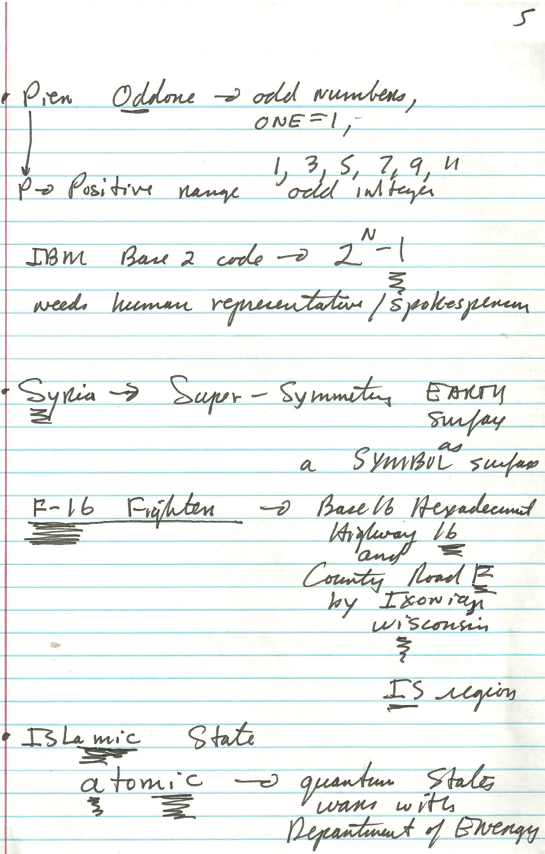 5
• Pier Oddone → odd numbers,
ONE=1,
1, 3, 5, 7, 9, 11
P→ Positive range odd integer
IBM Base 2 code → 2^N-1
needs human representative / spokesperson
• Syria → Super-Symmetry EARTH
surface
as
a SYMBOL surface
F-16 Fighter → Base 16 Hexadecimal
Highway 16
and
County Road F
by Ixonian
Wisconsin
IS region
• ISLamic State
atomic → quantum States
wars with
Department of Energy